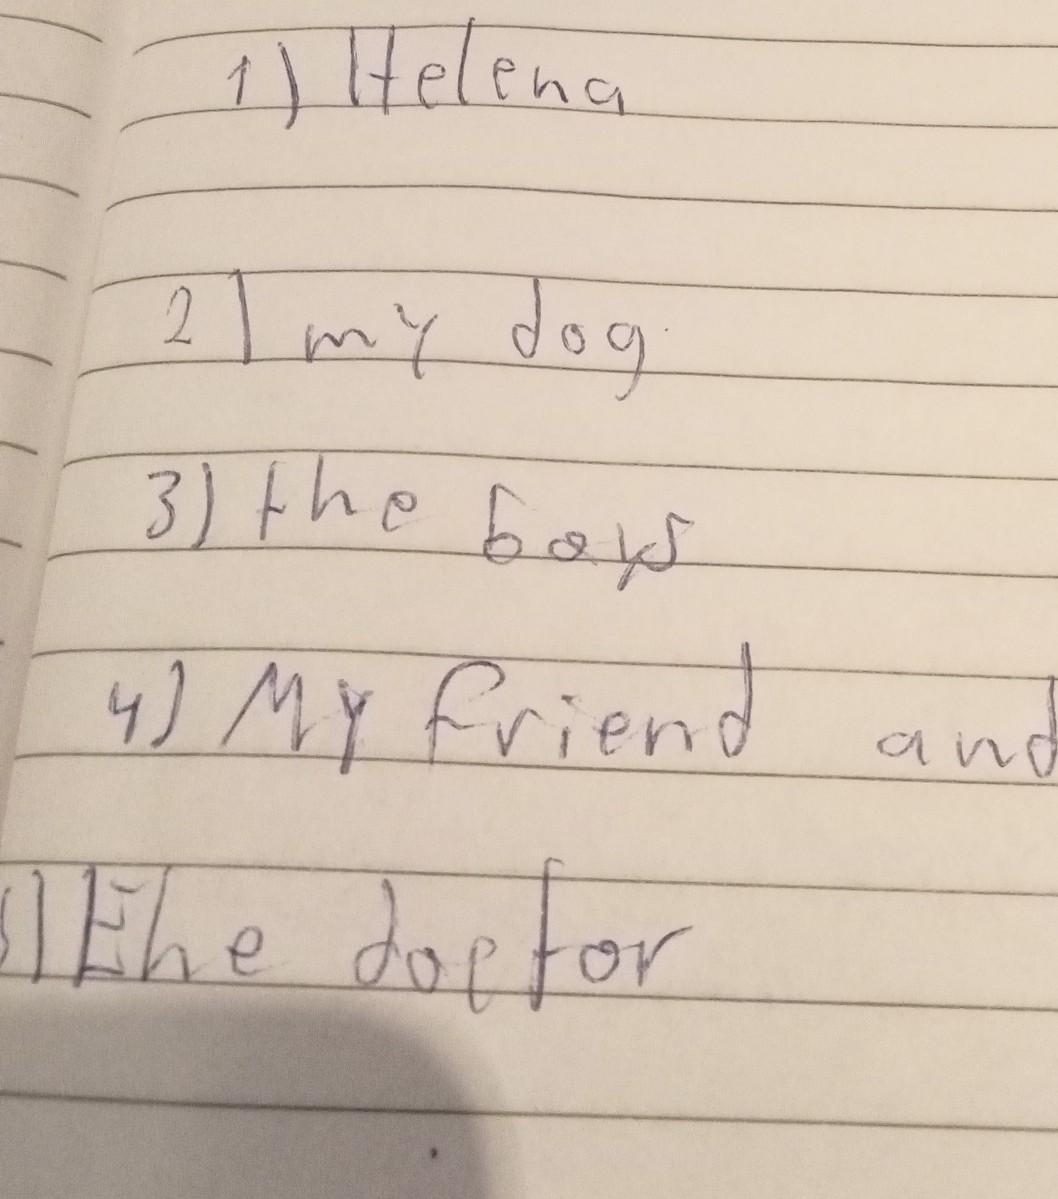 1) Helena
2) my dog
3) the boys
4) My friend and
5) the doctor